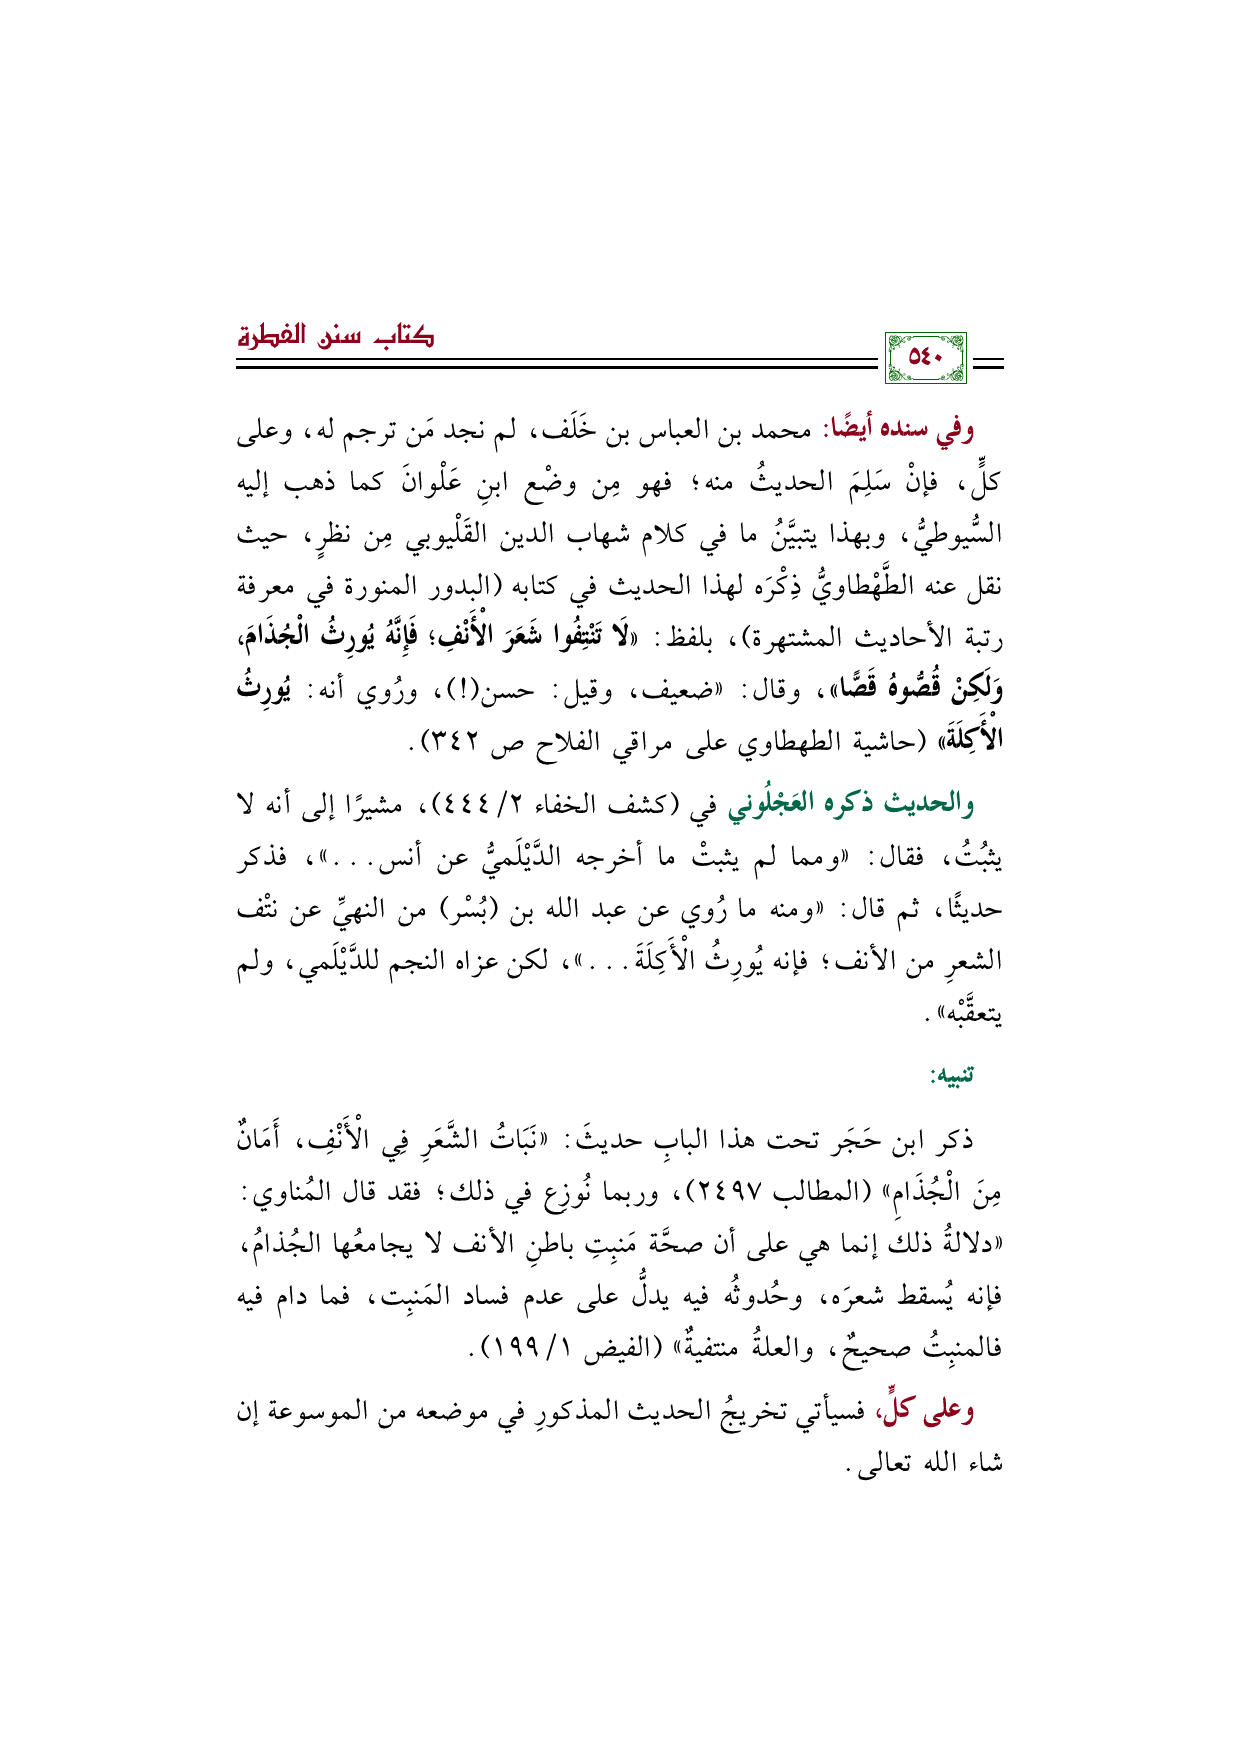 كتاب سنن الفطرة
٥٤٠
وفي سنده أيضًا: محمد بن العباس بن خَلَف، لم نجد مَن ترجم له، وعلى
كلٍّ، فإنْ سَلِمَ الحديثُ منه؛ فهو مِن وضْع ابنِ عَلْوانَ كما ذهب إليه
السُّيوطيُّ، وبهذا يتبيَّنُ ما في كلام شهاب الدين القَلْيوبي مِن نظرٍ، حيث
نقل عنه الطَّهْطاويُّ ذِكْرَه لهذا الحديث في كتابه (البدور المنورة في معرفة
رتبة الأحاديث المشتهرة)، بلفظ: «لَا تَنْتِفُوا شَعَرَ الْأَنْفِ؛ فَإِنَّهُ يُورِثُ الْجُذَامَ،
وَلَكِنْ قُصُّوهُ قَصًّا»، وقال: «ضعيف، وقيل: حسن(!)، ورُوي أنه: يُورِثُ
الْأَكِلَةَ» (حاشية الطهطاوي على مراقي الفلاح ص ٣٤٢).
والحديث ذكره العَجْلُوني في (كشف الخفاء ٢/ ٤٤٤)، مشيرًا إلى أنه لا
يثبُتُ، فقال: «ومما لم يثبتْ ما أخرجه الدَّيْلَميُّ عن أنس...»، فذكر
حديثًا، ثم قال: «ومنه ما رُوي عن عبد الله بن (بُسْر) من النهيِّ عن نتْف
الشعرِ من الأنف؛ فإنه يُورِثُ الْأَكِلَةَ...»، لكن عزاه النجم للدَّيْلَمي، ولم
يتعقَّبْه».
تنبيه:
ذكر ابن حَجَر تحت هذا البابِ حديثَ: «نَبَاتُ الشَّعَرِ فِي الْأَنْفِ، أَمَانٌ
مِنَ الْجُذَامِ» (المطالب ٢٤٩٧)، وربما نُوزِع في ذلك؛ فقد قال المُناوي:
«دلالةُ ذلك إنما هي على أن صحَّة مَنبِتِ باطنِ الأنف لا يجامعُها الجُذامُ،
فإنه يُسقط شعرَه، وحُدوثُه فيه يدلُّ على عدم فساد المَنبِت، فما دام فيه
فالمنبِتُ صحيحٌ، والعلةُ منتفيةٌ» (الفيض ١/ ١٩٩).
وعلى كلٍّ، فسيأتي تخريجُ الحديث المذكورِ في موضعه من الموسوعة إن
شاء الله تعالى.